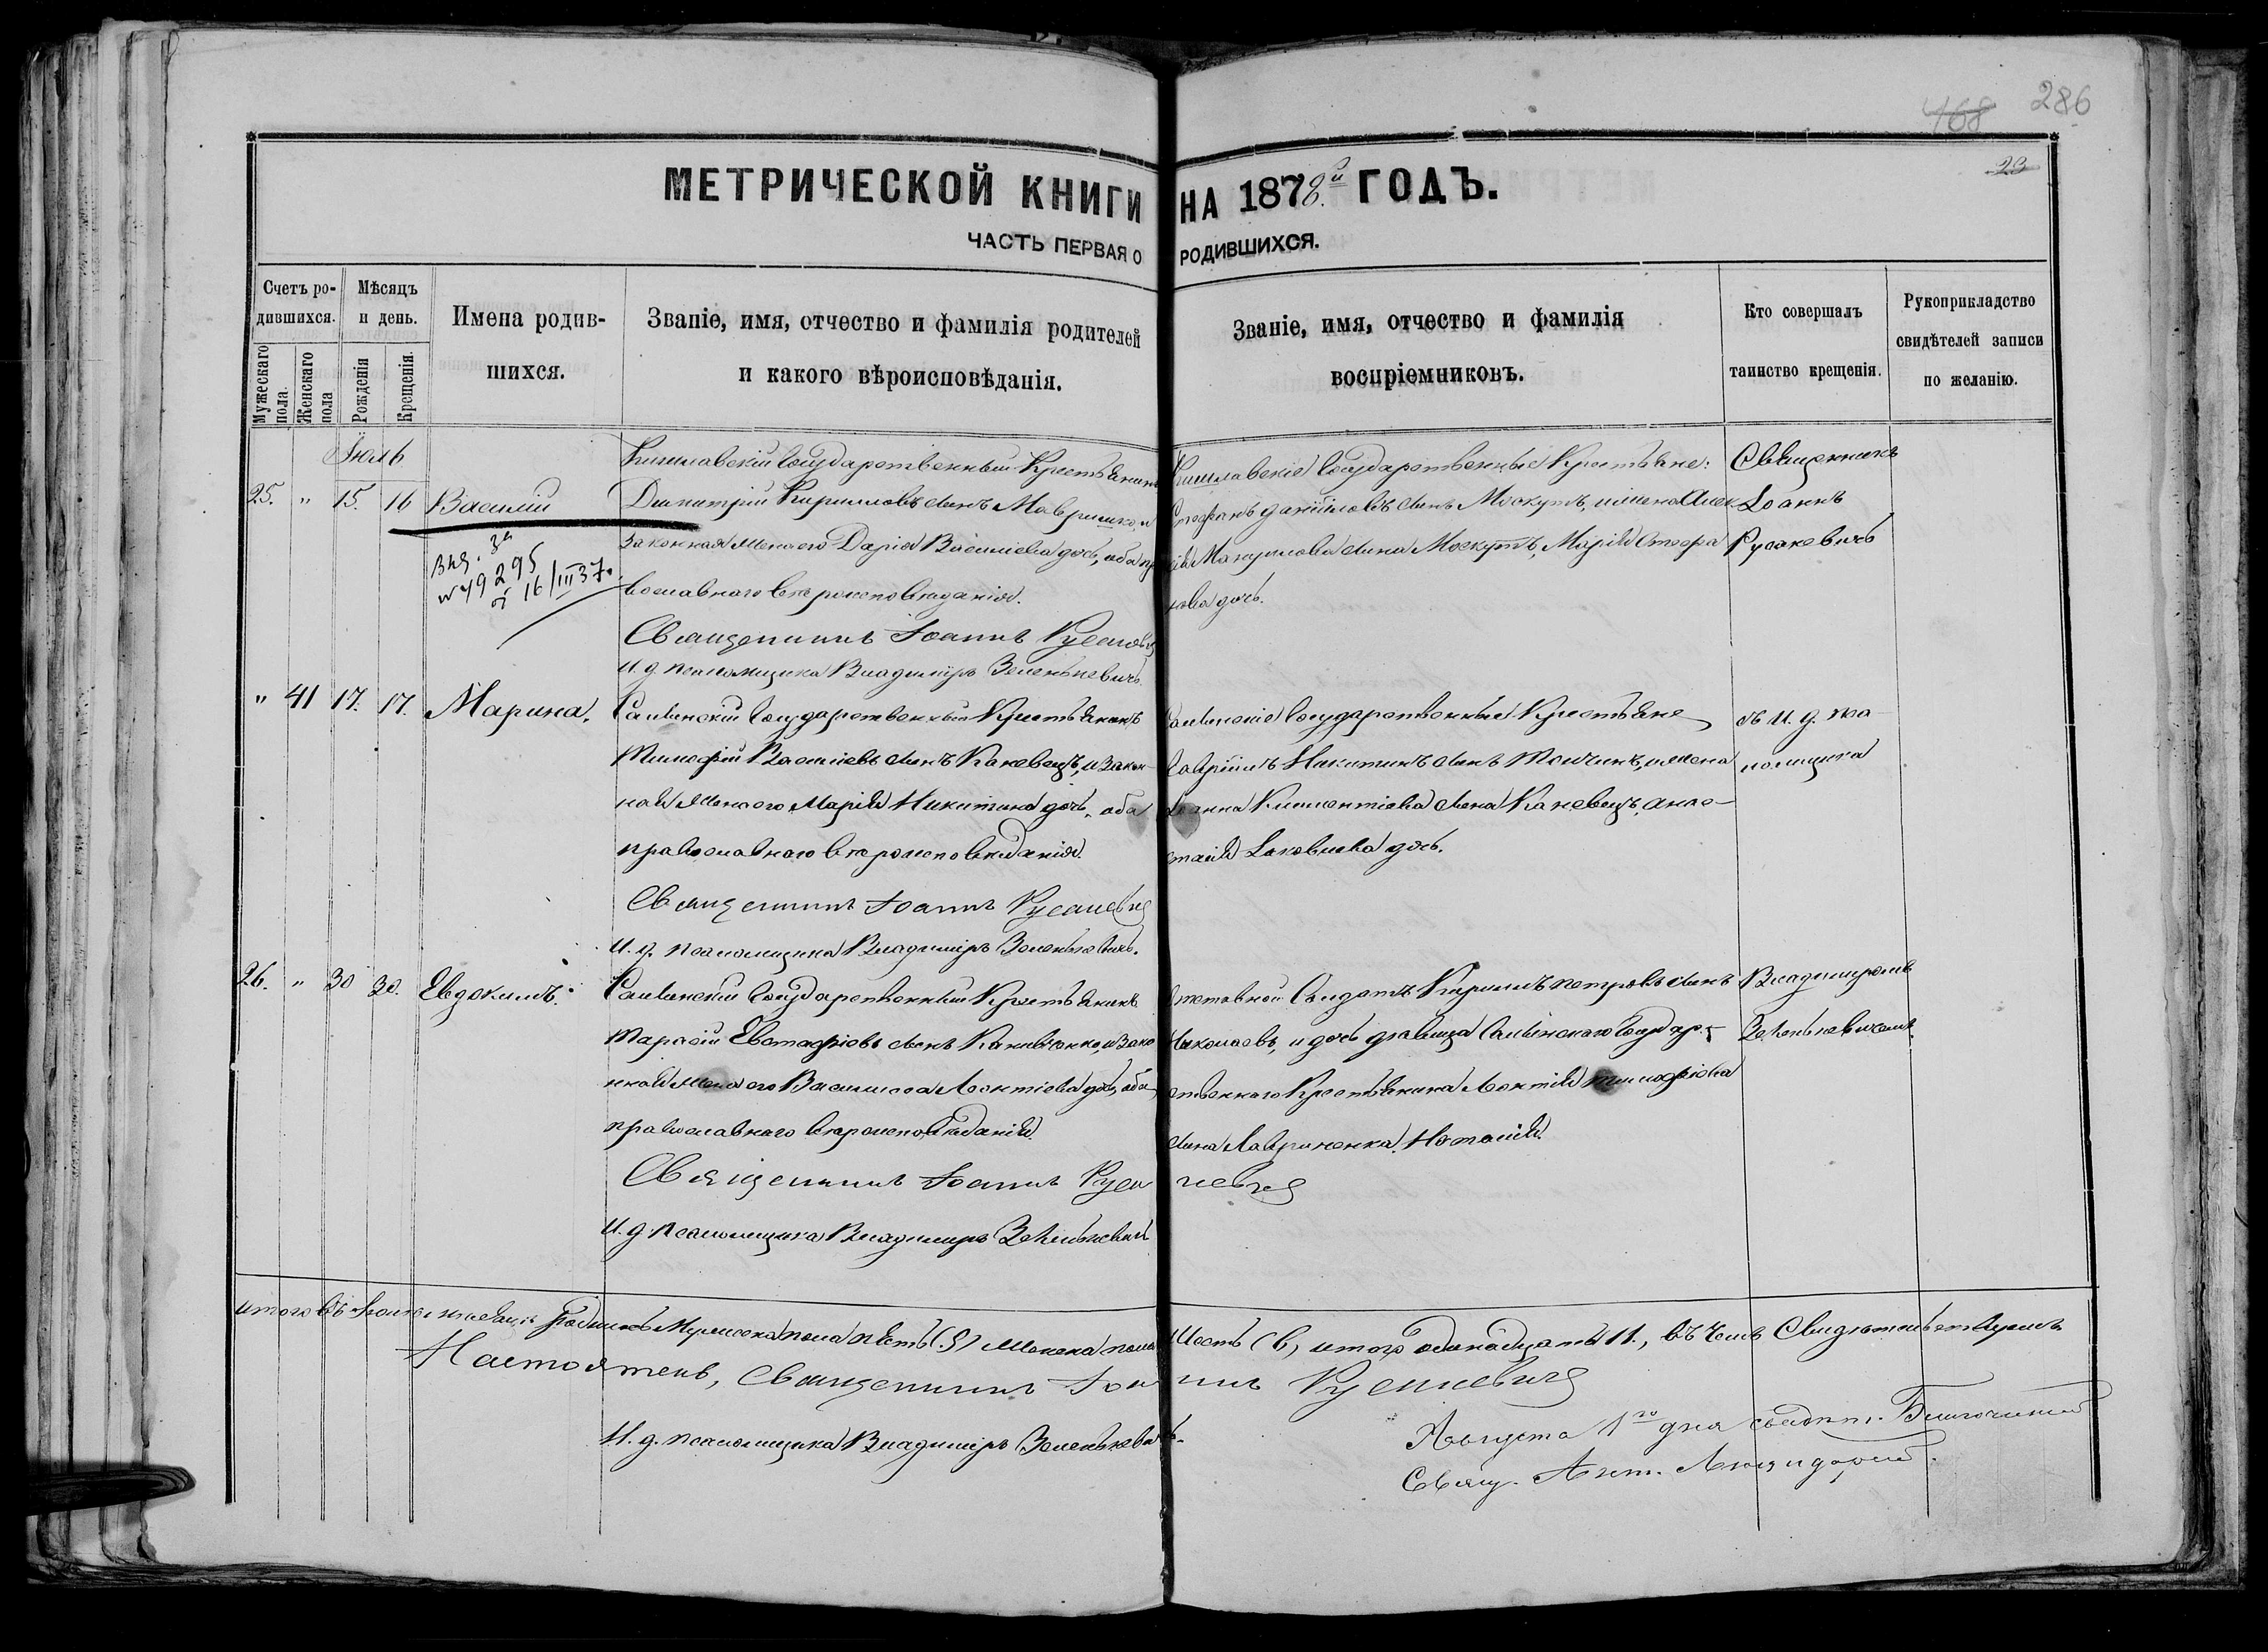 468 286
23
МЕТРИЧЕСКОЙ КНИГИ НА 1878.й ГОДЪ.
ЧАСТЬ ПЕРВАЯ О РОДИВШИХСЯ.
Счетъ ро-
дившихся.
Мужескаго пола.
Женскаго пола
Мѣсяцъ
и день.
Рожденія
Крещенія.
Имена родив-
шихся.
Званіе, имя, отчество и фамилія родителей
и какого вѣроисповѣданія.
Званіе, имя, отчество и фамилія
воспріемниковъ.
Кто совершалъ
таинство крещенія.
Рукоприкладство
свидѣтелей записи
по желанію.
Іюль
25. " 15. 16 Василій
Вид. за
№ 49295
от 16/III 37.
Государственный Крестьянинъ
Димитрій Кирилловъ сынъ Мавришко, и
Законная жена его Дарія Василіева дочь, оба пра
вославнаго вѣроисповѣданія.
Священникъ Іоаннъ Русакевичъ
И. д. псаломщика Владиміръ Зеленкевичъ
Государственные Крестьяне:
Стефанъ Даніиловъ сынъ Москутъ, и жена
сына Москутъ, Марія Стефа
нова дочь.
Священникъ
Іоаннъ
Русакевичъ
" 41 17. 17. Марина.
Государственный Крестьянинъ
Тимофей Васильевъ сынъ Каневецъ, и Закон-
ная жена его Марія Никитина дочь, оба
православнаго вѣроисповѣданія.
Священникъ Іоаннъ Русакевичъ
И. д. псаломщика Владиміръ Зеленкевичъ.
Государственные Крестьяне
Гавріилъ Никитинъ сынъ и жена
Іоанна Климентіева сына Каневецъ, Анас-
тасія Іаковлева дочь.
съ И. д. пса-
ломщика
26. " 30 30. Евдокимъ.
Государственный Крестьянинъ
Тарасій Евстафіевъ сынъ и Зако
нная жена его Василиса Леонтіева дочь, оба
православнаго вѣроисповѣданія.
Священникъ Іоаннъ Русакевичъ
И. д. псаломщика Владиміръ Зеленкевичъ
Отставной Солдатъ Кириллъ Петровъ сынъ
Николаевъ, и дочь дѣвица Государ-
ственнаго Крестьянина Леонтія Тимофіева
сына Лавриненка, Наталія.
Владиміромъ
Зеленкевичемъ.
Итого въ Іюлѣ мѣсяцѣ Родилось Мужеска пола пять (5) Женска пола Шесть (6) итого одинадцать 11., въ чемъ Свидѣтельствуемъ
Настоятель, Священникъ Іоаннъ Русакевичъ
И. д. псаломщика Владиміръ Зеленкевичъ.
Августа 1го дня Благочинный
Свящ. Ант.